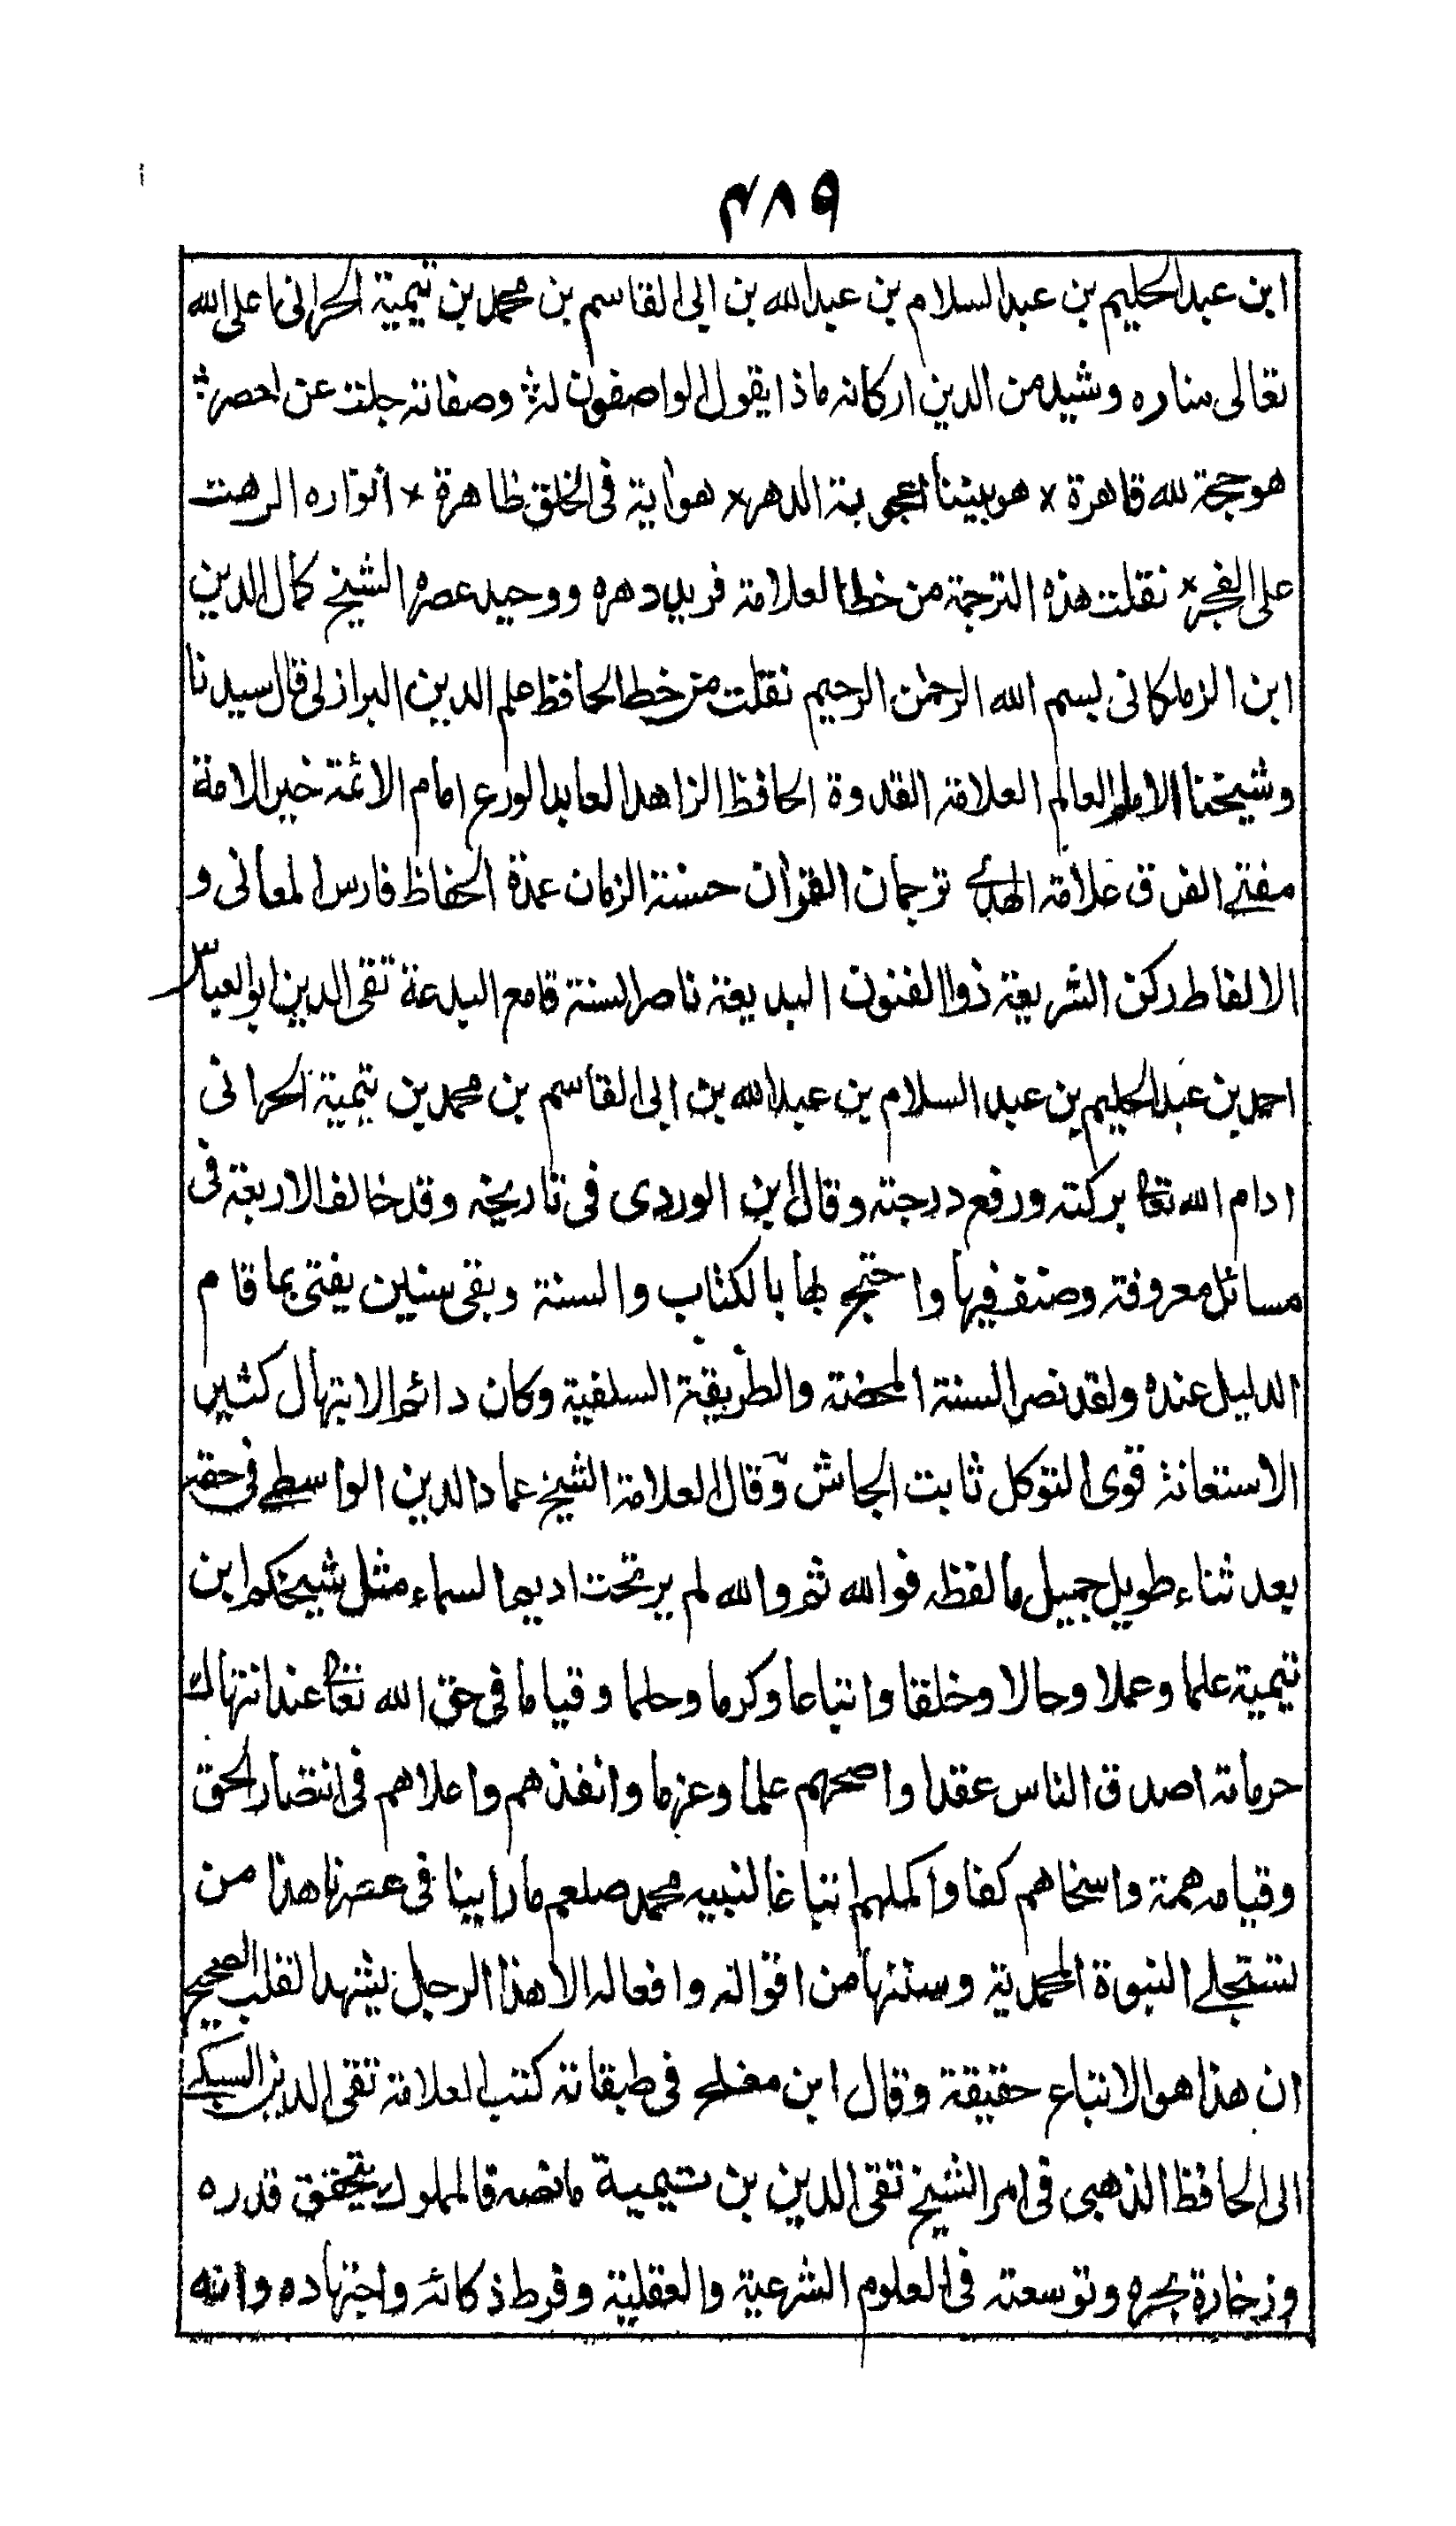 ٤٨٩
ابن عبد الحليم بن عبد السلام بن عبد الله بن ابى القاسم بن محمد بن تيمية الحرانى اعلى الله
تعالى مناره وشيد من الدين اركانه ماذا يقول الواصفون له × وصفاته جلت عن الحصر ×
هو حجة لله قاهرة × هو بيننا اعجوبة الدهر × هو اية فى الخلق ظاهرة × انواره اربهت
على الفجر × نقلت هذه الترجمة من خط العلامة فريد دهره ووحيد عصره الشيخ كمال الدين
ابن الزملكانى بسم الله الرحمن الرحيم نقلت من خط الحافظ علم الدين البرازلى قال سيدنا
وشيخنا الامام العالم العلامة القدوة الحافظ الزاهد العابد الورع امام الائمة خير الامة
مفتى الفرق علامة الهدى ترجمان القران حسنة الزمان عمدة الحفاظ فارس المعانى و
الالفاظ ركن الشريعة ذوا الفنون البديعة ناصر السنة قامع البدعة تقى الدين ابو العباس
احمد بن عبد الحليم بن عبد السلام بن عبد الله بن ابى القاسم بن محمد بن تيمية الحرانى
ادام الله تعا بركته ورفع درجته وقال ابن الوردى فى تاريخه وقد خالف الاربعة فى
مسائل معروفة وصنف فيها واحتج لها بالكتاب والسنة وبقى سنين يفتى بما قام
الدليل عنده ولقد نصر السنة المحضة والطريقة السلفية وكان دائم الابتهال كثير
الاستعانة قوى التوكل ثابت الجاش وقال العلامة الشيخ عماد الدين الواسطى فى حقه
بعد ثناء طويل جميل ما لفظه فوالله ثم والله لم ير تحت اديم السماء مثل شيخكم ابن
تيمية علما وعملا وحالا وخلقا واتباعا وكرما وحلما وقياما فى حق الله تعا عند انتهاك
حرماته اصدق الناس عقدا واصحهم علما وعزما وانفذهم واعلاهم فى انتصار الحق
وقيامه همة واسخاهم كفا واكملهم اتباعا لنبيه محمد صلعم ما راينا فى عصرنا هذا من
تستجلى النبوة المحمدية وسننها من اقواله وافعاله الا هذا الرجل يشهد القلب الصحيح
ان هذا هو الاتباع حقيقة وقال ابن مفلح فى طبقاته كتب العلامة تقى الدين السبكى
الى الحافظ الذهبى فى امر الشيخ تقى الدين بن تيمية ما نصه فالمملوك يتحقق قدره
وزخارة بحره وتوسعته فى العلوم الشرعية والعقلية وفرط ذكائه واجتهاده وانه